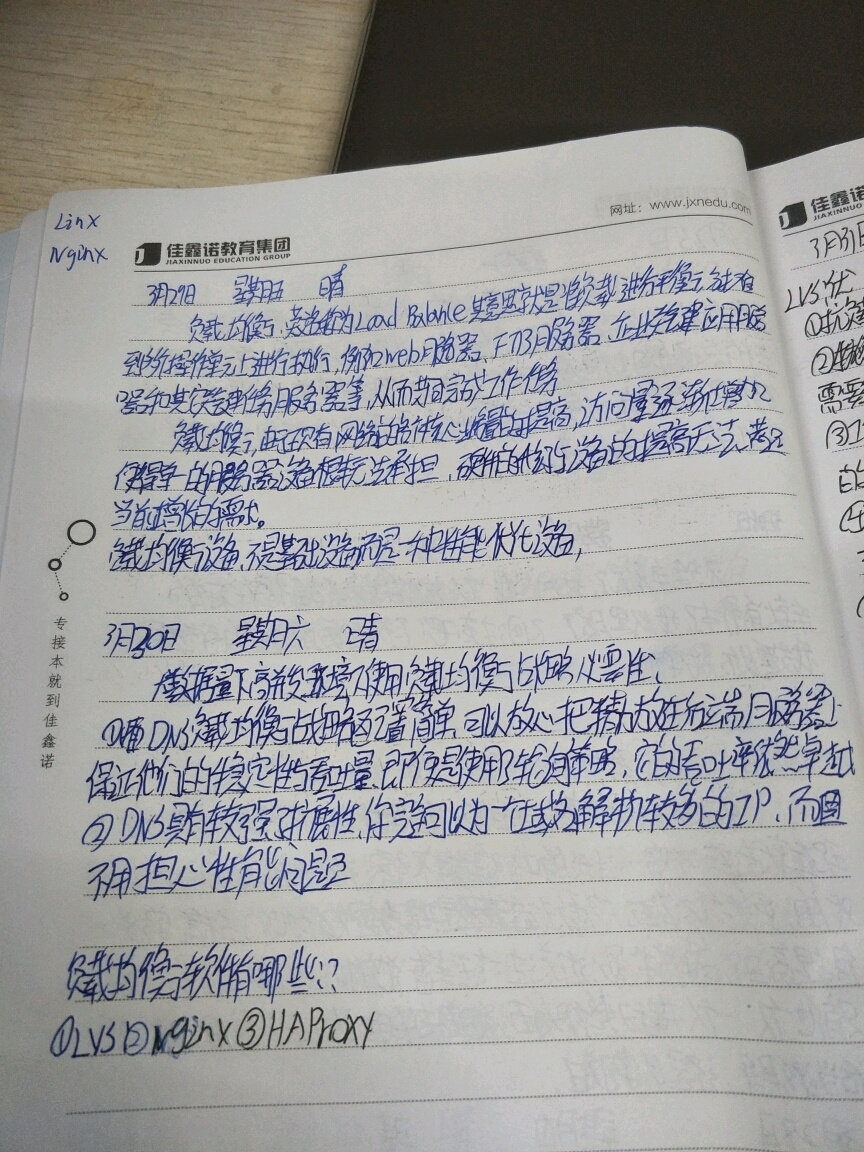 Linx
Nginx
网址：www.jxnedu.com
佳鑫诺教育集团
JIAXINNUO EDUCATION GROUP
3月29日 星期五 晴
负载均衡，英文名称为Load Balance 其意思就是将负载进行平衡、分摊
到多个操作单元上进行执行，例如web服务器、FTP服务器、企业关键应用服务
器和其它关键任务服务器等，从而共同完成工作任务
负载均衡，由于现有网络的各个核心业务量的提高，访问量逐渐增加
使得单一的服务器设备根本无法承担，
当前增长的需求。
负载均衡设备，不是基础设备而是一种性能优化设备，
专接本就到佳鑫诺
3月30日 星期六 晴
大数据量下高并发环境下使用负载均衡战略必需性、
DNS负载均衡战略配置简单，可以放心把精力放在后端服务器上
保证他们的稳定性与吞吐量，即使是使用了轮询策略，它的吞吐率依然卓越
② DNS具有较强扩展性，你完全可以为一个域名解析较多的IP，而且
不用担心性能问题
负载均衡软件有哪些？？
①LVS ②Nginx ③HAProxy
佳鑫诺
JIAXINNUO
3月31日
LVS优
需要